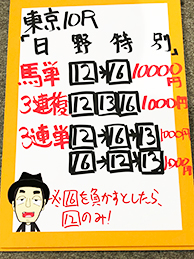 東京10R
「日野特別」
馬単 12→16 10000円
3連複 12 13 16 1000円
3連単 12→16→13 1000円
16→12→13 1000円
※16を負かすとしたら、
12のみ!